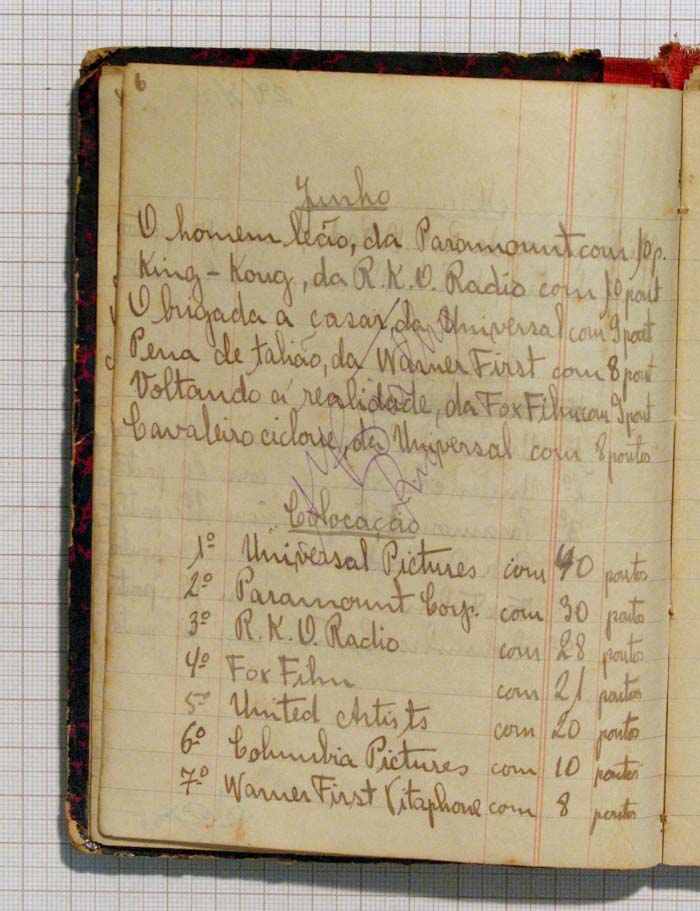 6
Junho
O homem leão, da Paramount com 10 p.
King-Kong, da R.K.O. Radio com 10 pont
Obrigada a casar, da Universal com 9 pont
Pena de talião, da Warner First com 8 pont
Voltando á realidade, da Fox Film com 9 pont
Cavaleiro ciclone, da Universal com 8 pontos
Colocação
1º Universal Pictures com 40 pontos
2º Paramount Corp. com 30 pontos
3º R.K.O. Radio com 28 pontos
4º Fox Film com 21 pontos
5º United Artists com 20 pontos
6º Columbia Pictures com 10 pontos
7º Warner First Vitaphone com 8 pontos